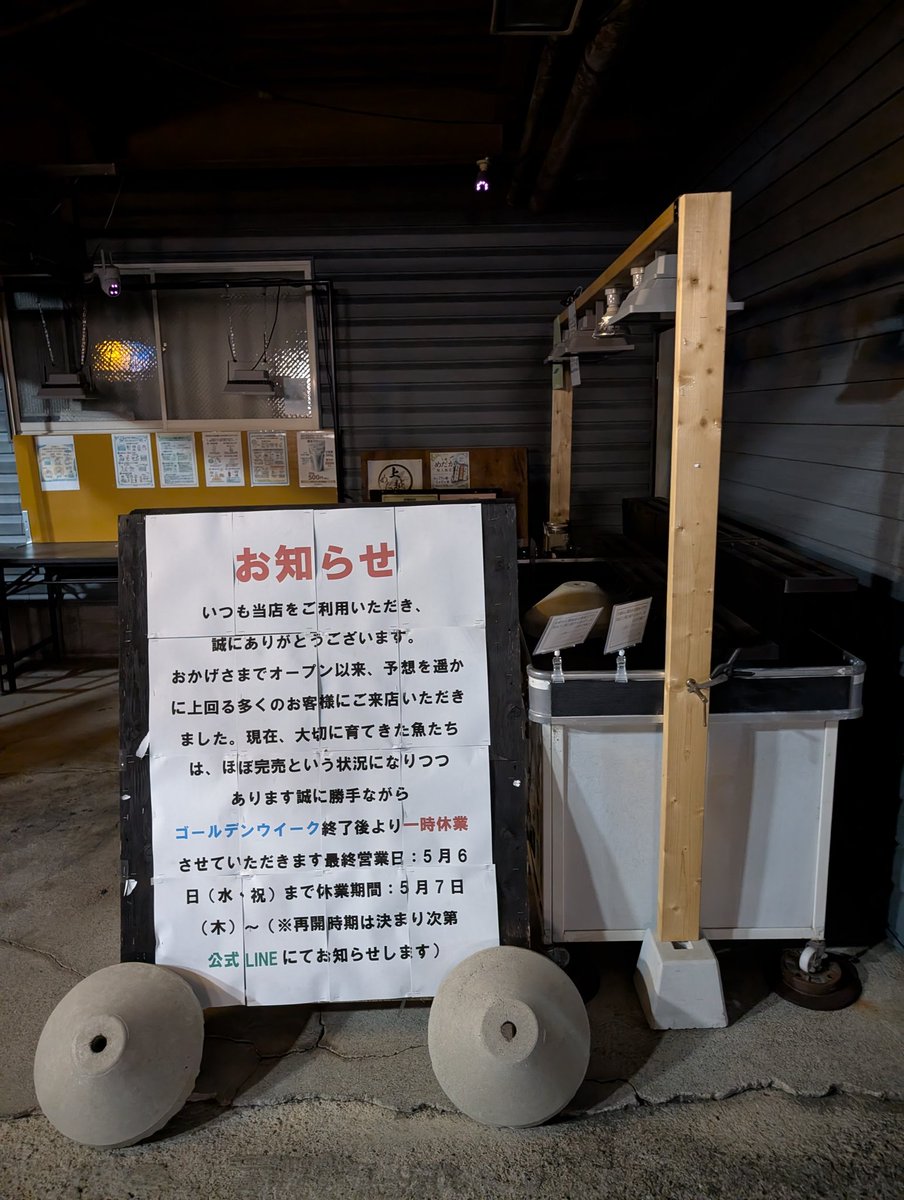 500円
上
めだか
お知らせ
いつも当店をご利用いただき、
誠にありがとうございます。
おかげさまでオープン以来、予想を遥か
に上回る多くのお客様にご来店いただき
ました。現在、大切に育てきた魚たち
は、ほぼ完売という状況になりつつ
あります誠に勝手ながら
ゴールデンウイーク終了後より一時休業
させていただきます最終営業日：５月６
日（水・祝）まで休業期間：５月７日
（木）～（※再開時期は決まり次第
公式 LINE にてお知らせします）